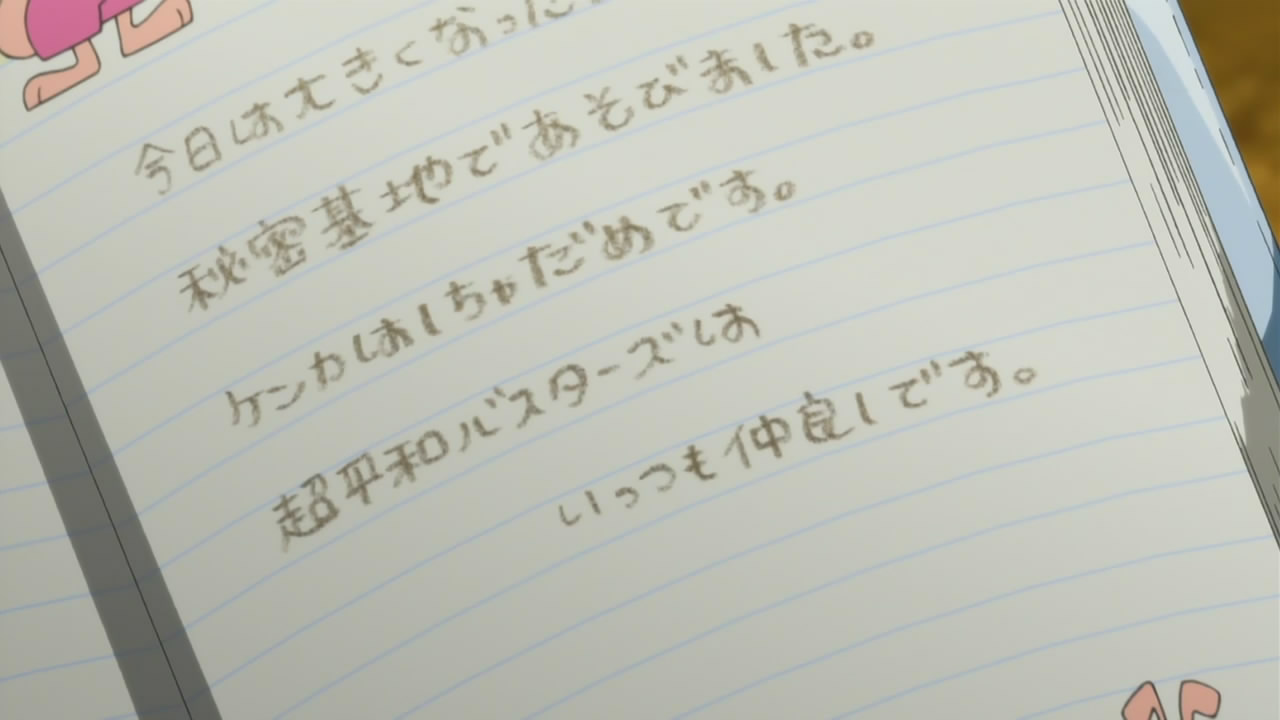 今日は大きくなった
秘密基地であそびました。
ケンカはしちゃだめです。
超平和バスターズは
いっつも仲良しです。